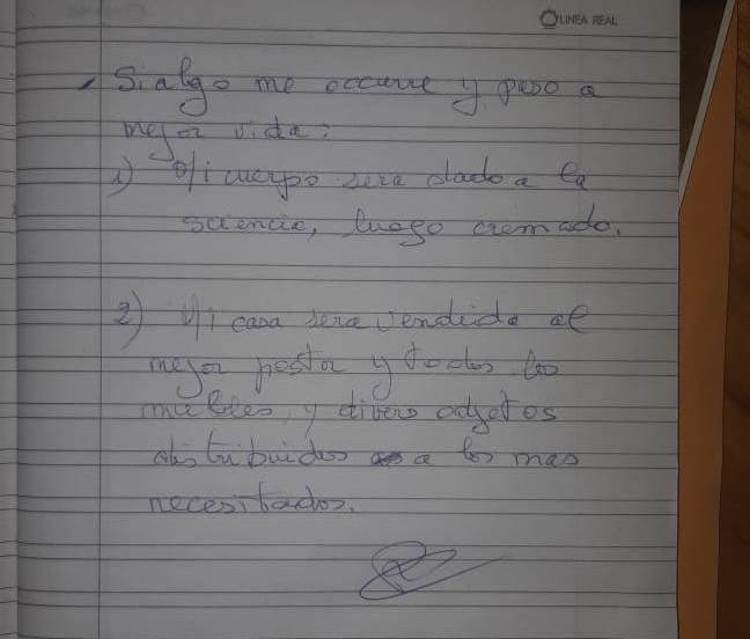 LINEA REAL
Si algo me occurre y paso a
mejor vida:
1) Mi cuerpo sera dado a la
sciencia, luego cremado.
2) Mi casa sera vendida al
mejor postor y todos los
muebles, y divers objetos
distribuidos a los mas
necesitados.